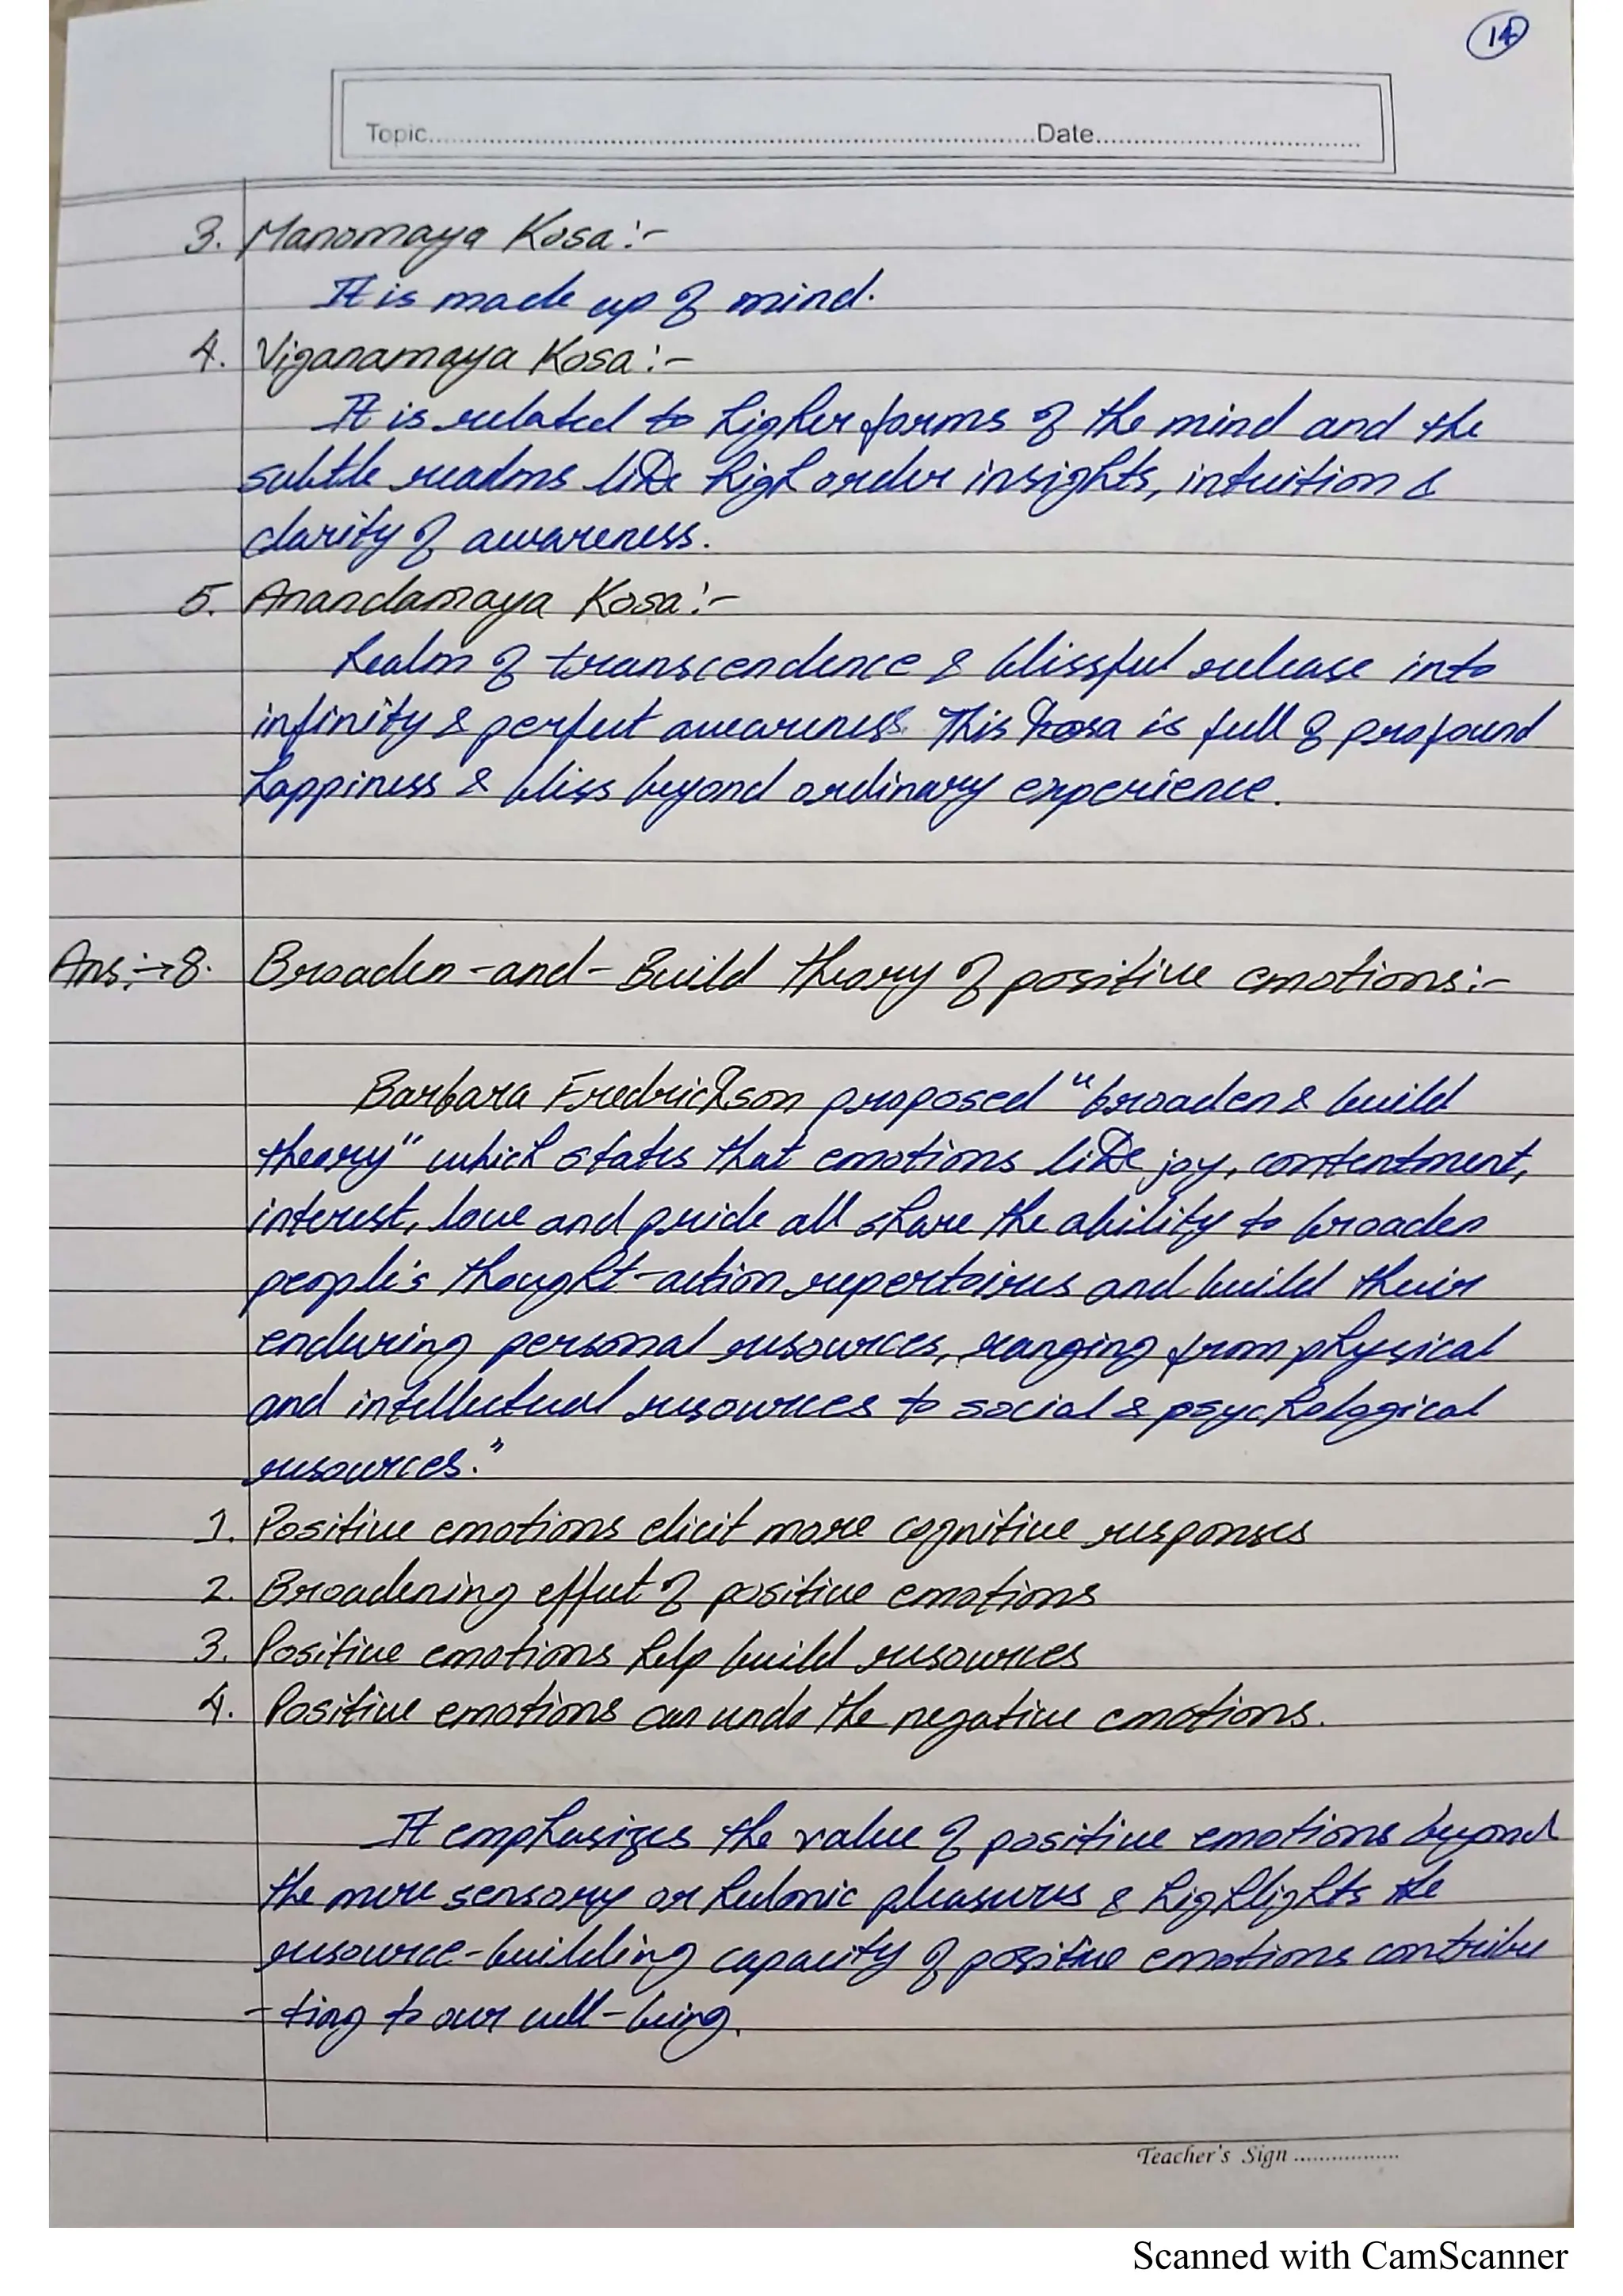 14
Topic..........Date..........
3. Manomaya Kosa:-
It is made up of mind.
4. Viganamaya Kosa:-
It is related to higher forms of the mind and the
subtle realms like high order insights, intuition &
clarity of awareness.
5. Anandamaya Kosa:-
Realm of transcendence & blissful release into
infinity & perfect awareness. This kosa is full of profound
happiness & bliss beyond ordinary experience.
Ans:→8. Broaden-and-Build theory of positive emotions:-
Barbara Fredrickson proposed "broaden & build
theory" which states that emotions like joy, contentment,
interest, love and pride all share the ability to broaden
people's thought-action repertoires and build their
enduring personal resources, ranging from physical
and intellectual resources to social & psychological
resources."
1. Positive emotions elicit more cognitive responses
2. Broadening effect of positive emotions
3. Positive emotions help build resources
4. Positive emotions can undo the negative emotions.
It emphasizes the value of positive emotions beyond
the mere sensory or hedonic pleasures & highlights the
resource-building capacity of positive emotions contribu
-ting to our well-being.
Teacher's Sign ..........
Scanned with CamScanner